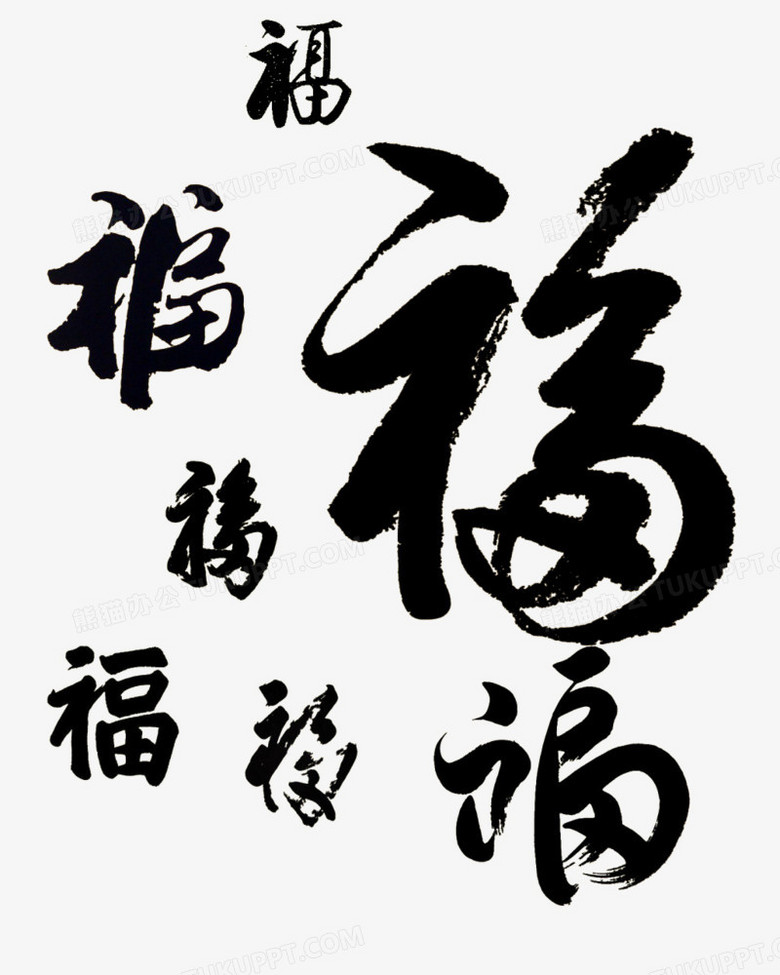 福
福
福
福
福
福
福
熊猫办公 TUKUPPT.COM
熊猫办公 TUKUPPT.COM
熊猫办公 TUKUPPT.COM
熊猫办公 TUKUPPT.COM
TUKUPPT.COM
TUKUPPT.COM